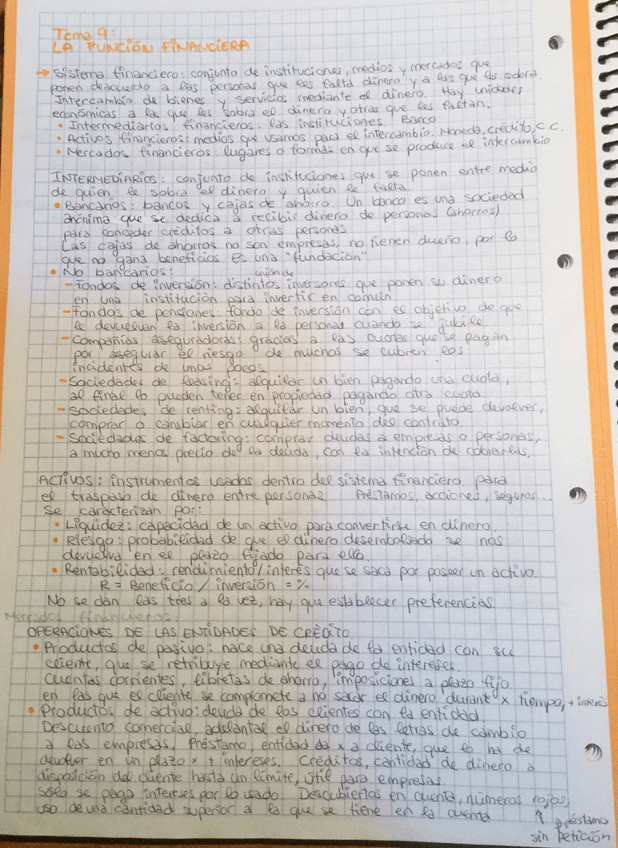 Tema 9:
LA FUNCIÓN FINANCIERA
→ Sistema financiero: conjunto de instituciones, medios y mercados que
ponen deacuerdo a las personas que les falta dinero y a las que les sobra.
Intercambio de bienes y servicios mediante el dinero. Hay unidades
económicas a la que les sobra el dinero y otras que les faltan.
• Intermediarios financieros: las instituciones. Banco
• Activos financieros: medios que usamos para el intercambio. Moneda, crédito, c.c.
• Mercados financieros: lugares o formas en que se produce el intercambio
INTERMEDIARIOS: conjunto de instituciones que se ponen entre medio
de quien le sobra el dinero y quien le falta.
• Bancarios: bancos y cajas de ahorro. Un banco es una sociedad
anónima que se dedica a recibir dinero de personas (ahorros)
para conceder créditos a otras personas.
Las cajas de ahorros no son empresas, no tienen dueño, por lo
que no gana beneficios. Es una "fundación"
• No bancarios:
unión de
- Fondos de inversión: distintos inversores que ponen su dinero
en una institución para invertir en común.
- Fondos de pensiones: fondo de inversión con el objetivo de que
le devuelvan la inversión a la persona cuando se jubile.
- Compañías aseguradoras: gracias a las cuotas que se pagan
por asegurar el riesgo de muchos se cubren los
incidentes de unos pocos.
- Sociedades de leasing: alquilar un bien pagando una cuota,
al final lo pueden tener en propiedad pagando otra cuota.
- Sociedades de renting: alquilar un bien, que se puede devolver,
comprar o cambiar en cualquier momento del contrato.
- Sociedades de factoring: comprar deudas a empresas o personas,
a mucho menos precio de la deuda, con la intención de cobrarlas.
ACTIVOS: instrumentos usados dentro del sistema financiero para
el traspaso de dinero entre personas. Préstamos, acciones, seguros...
Se caracterizan por:
• Liquidez: capacidad de un activo para convertirse en dinero.
• Riesgo: probabilidad de que el dinero desembolsado se nos
devuelva en el plazo fijado para ello.
• Rentabilidad: rendimiento/interés que se saca por poseer un activo.
R = Beneficio / inversión = %
No se dan las tres a la vez, hay que establecer preferencias.
Mercados financieros:
OPERACIONES DE LAS ENTIDADES DE CRÉDITO
• Productos de pasivo: nace una deuda de la entidad con su
cliente, que se retribuye mediante el pago de intereses.
Cuentas corrientes, libretas de ahorro, imposiciones a plazo fijo
en las que el cliente se compromete a no sacar el dinero durante x tiempo, + interés
• Productos de activo: deuda de los clientes con la entidad.
Descuento comercial, adelantal el dinero de las letras de cambio
a las empresas. Préstamo, entidad da x a cliente, que lo ha de
devolver en un plazo x + intereses. Créditos, cantidad de dinero a
disposición del cliente hasta un límite, útil para empresas.
Sólo se paga intereses por lo usado. Descubiertos en cuenta, números rojos,
uso de una cantidad superior a la que se tiene en la cuenta.
↑ préstamo
sin petición